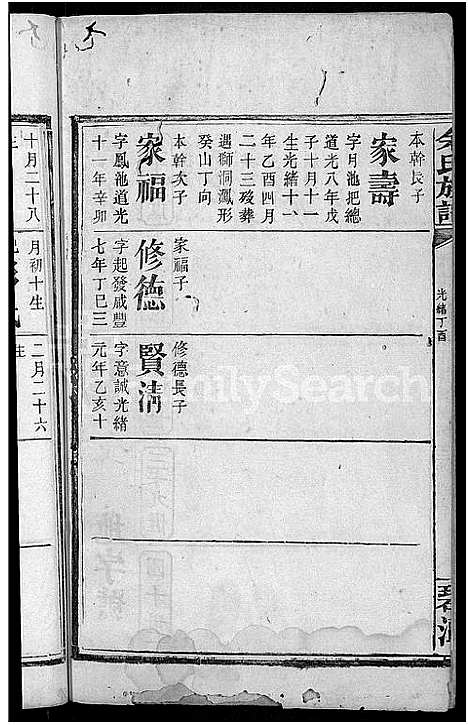 氏族譜
光緒丁酉
本幹長子
家壽
字月池把總
道光八年戊
子十月十一
生光緒十一
年乙酉四月
二十三歿葬
遇獅洞鳳形
癸山丁向
本幹次子
家福
字鳳池道光
十一年辛卯
家福子
修德
字起發咸豐
七年丁巳三
修德長子
賢清
字意誠光緒
元年乙亥十
十月二十八
生
月初十生
二月二十六
生
FamilySearch